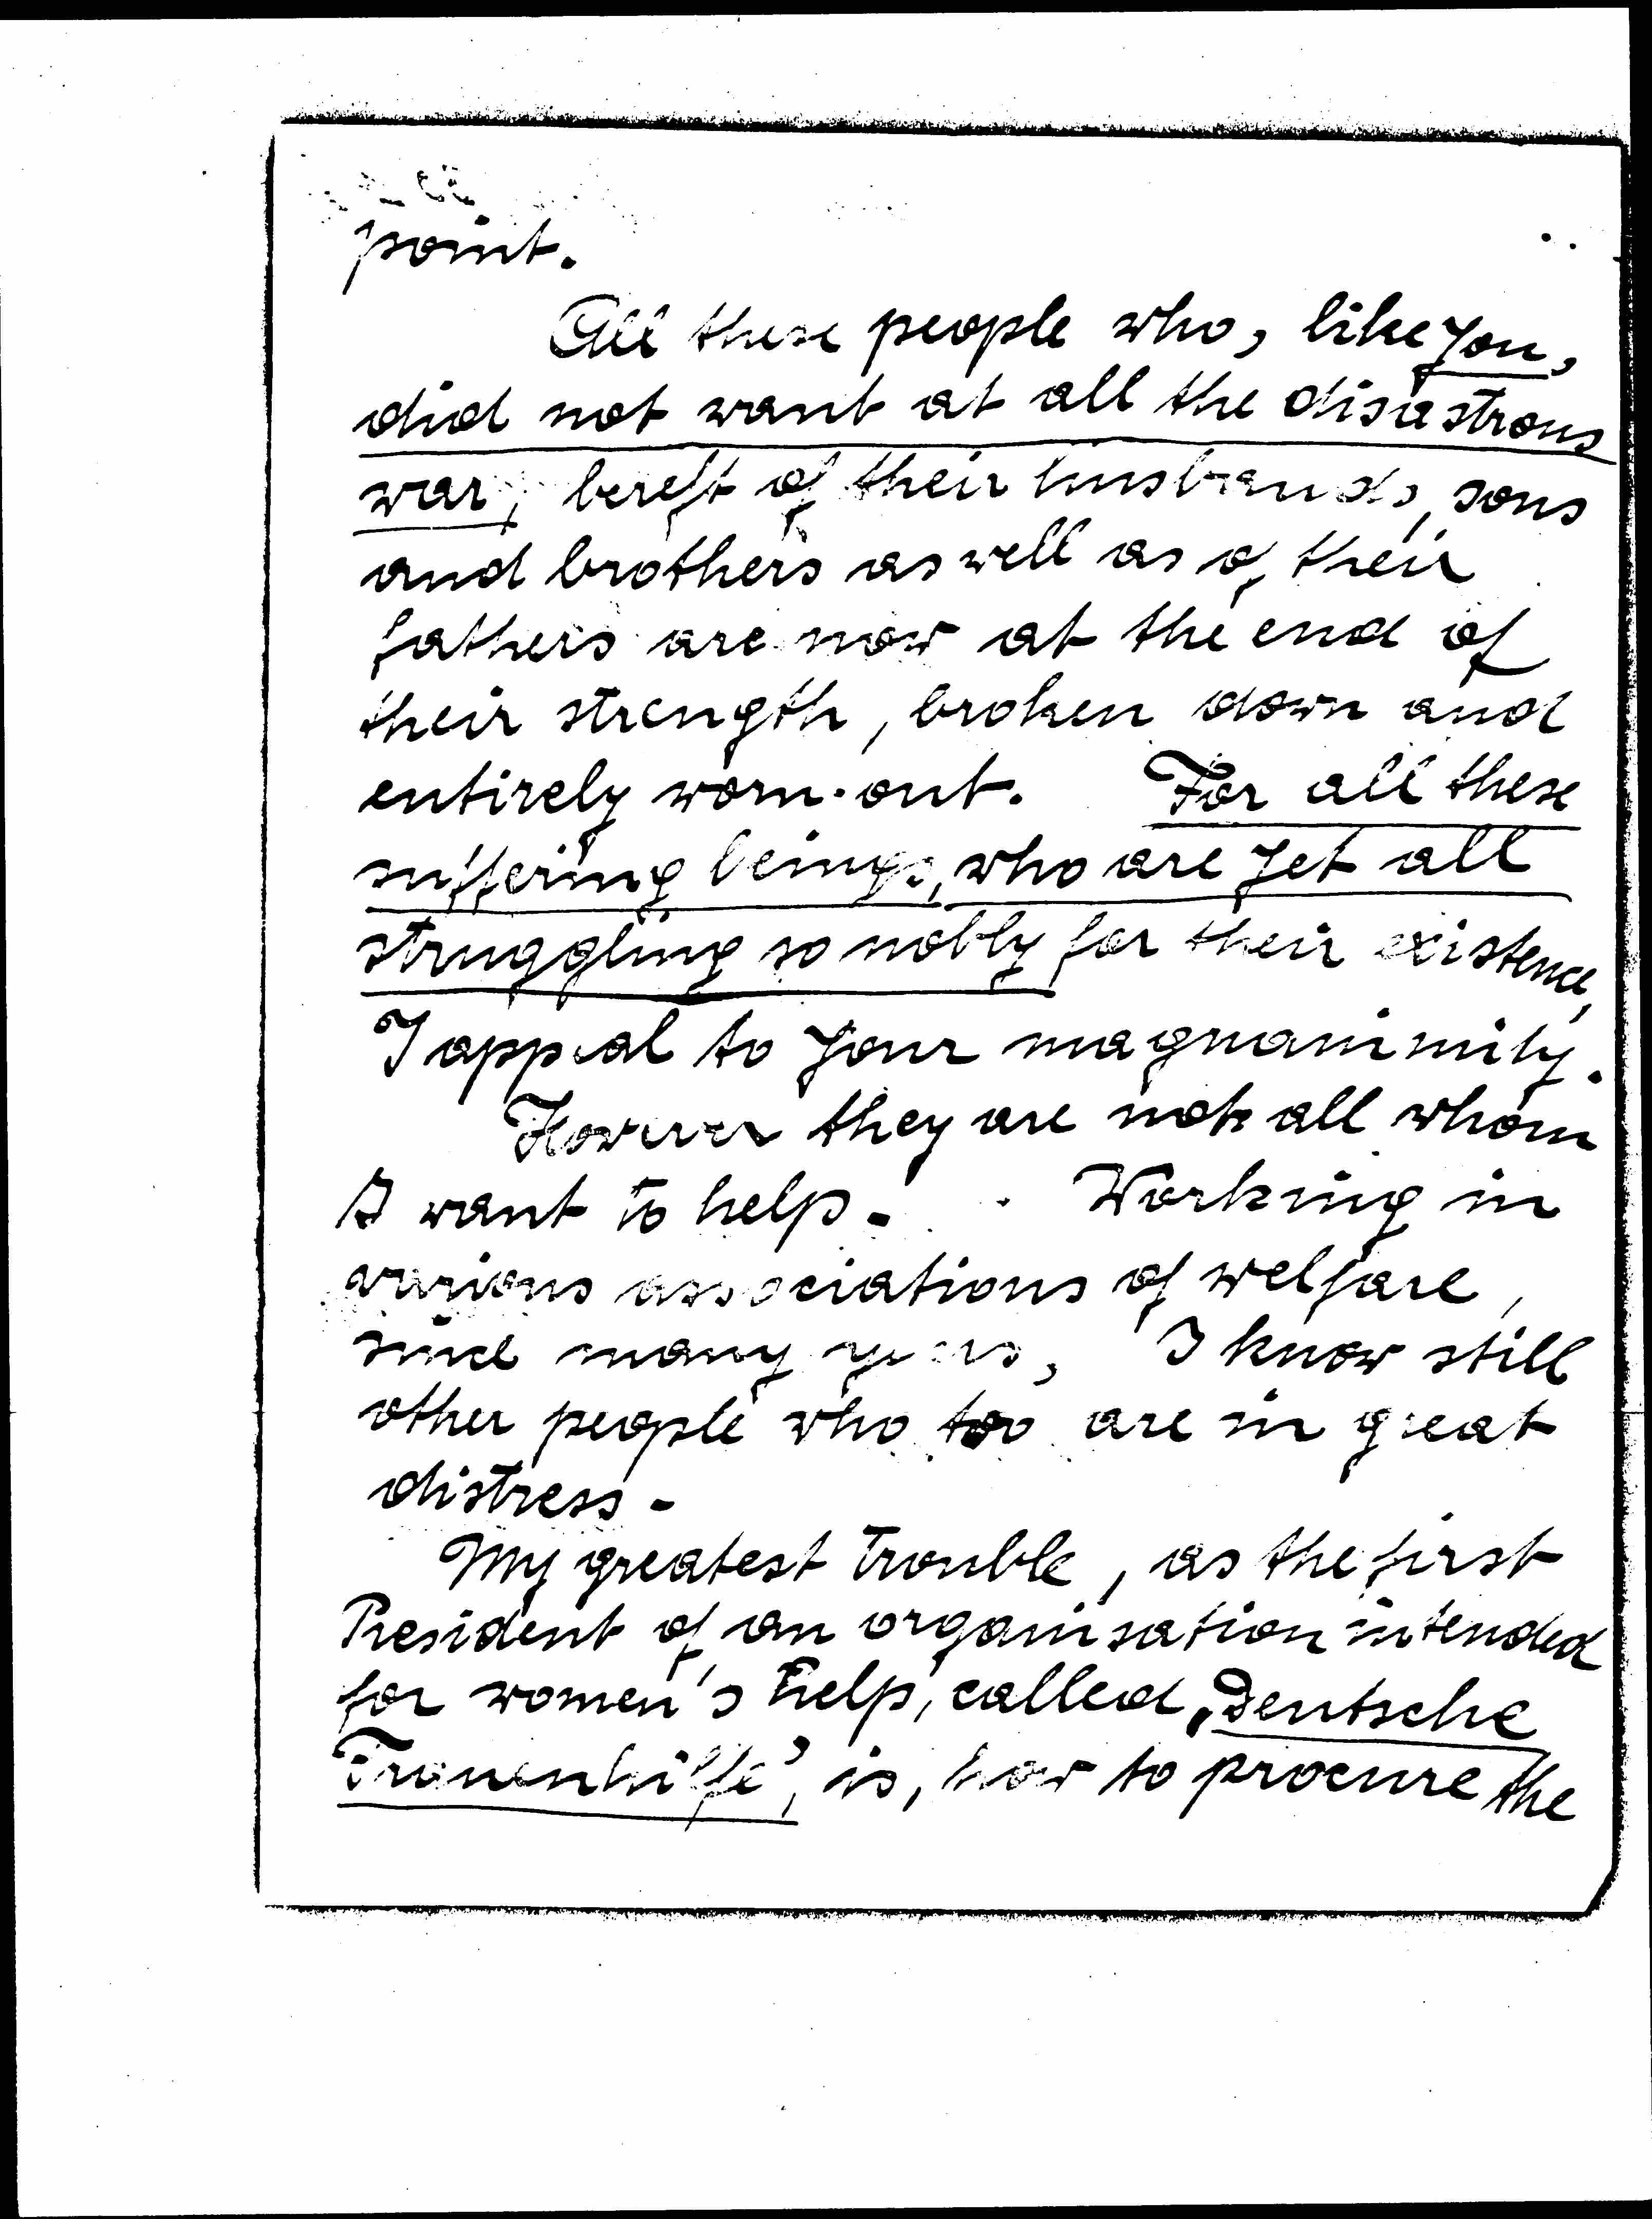 point.
All these people who, like you,
did not want at all the disastrous
war, bereft of their husbands, sons
and brothers as well as of their
fathers are now at the end of
their strength, broken down and
entirely worn-out. For all these
suffering beings, who are yet all
struggling so nobly for their existence,
I appeal to your magnanimity.
However they are not all whom
I want to help. Working in
various associations of welfare,
since many years, I know still
other people who too are in great
distress.
My greatest trouble, as the first
President of an organisation intended
for women's help, called „Deutsche
Frauenhilfe", is, how to procure the